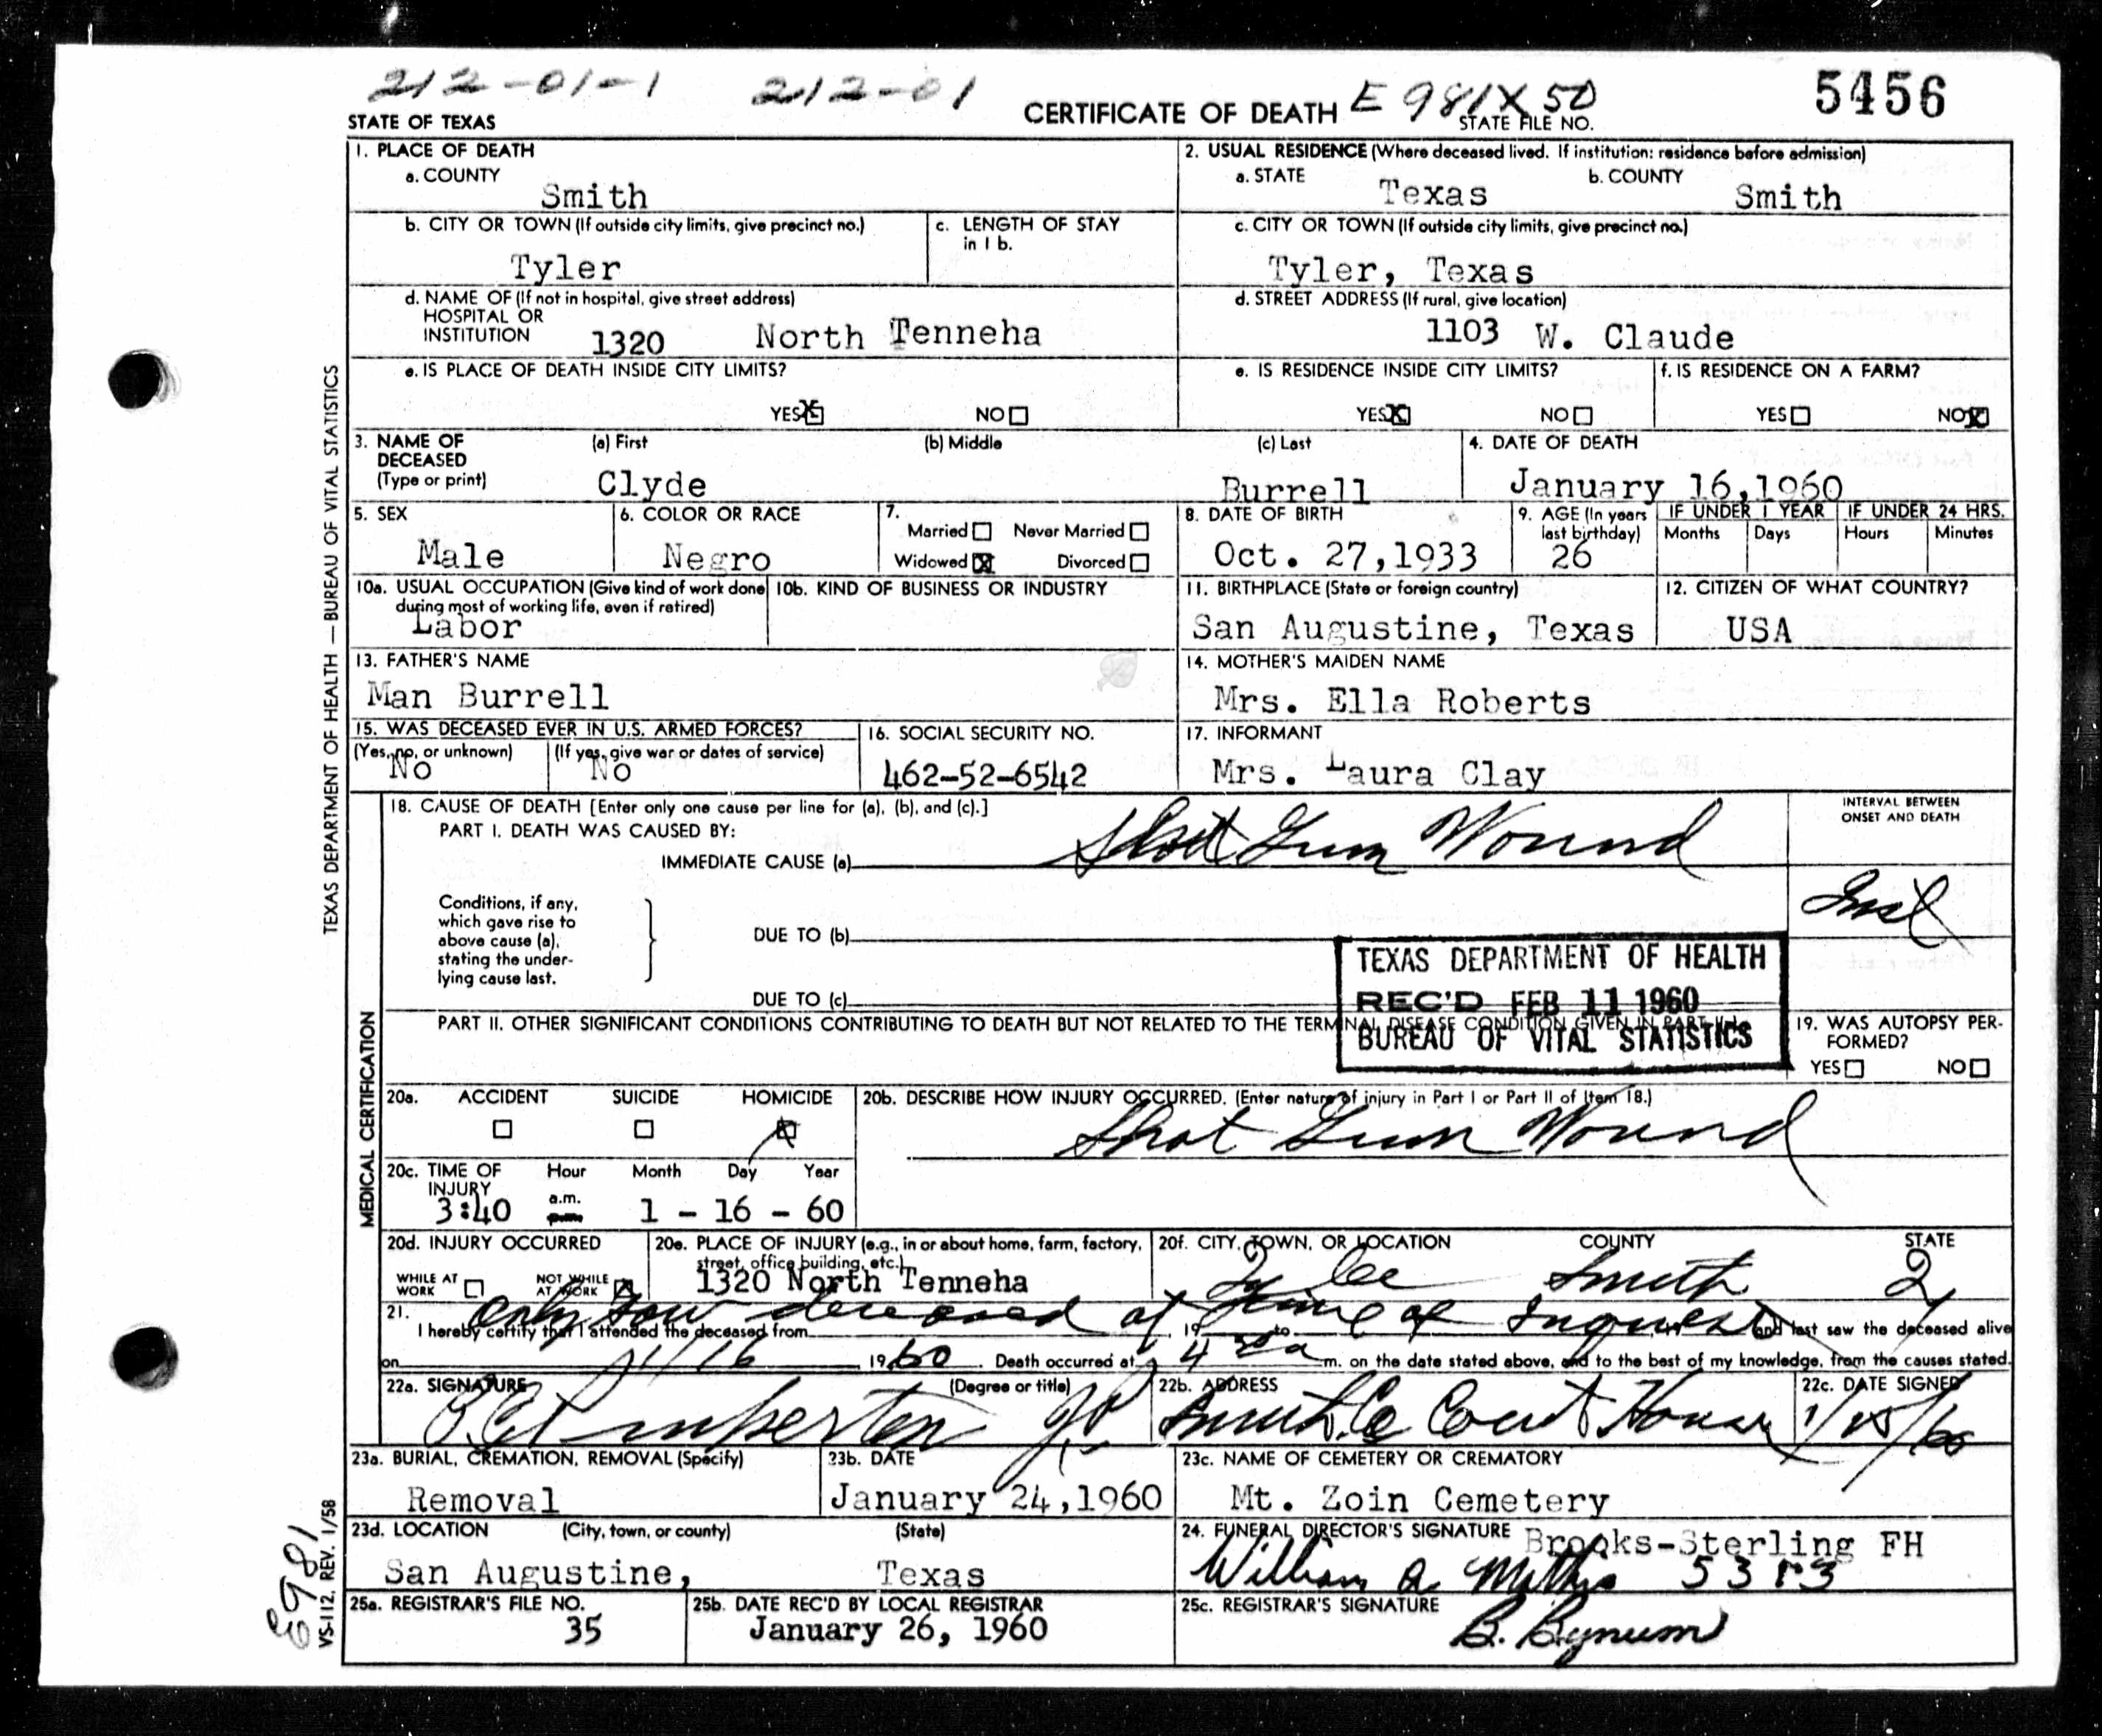 212-01-1 212-01 E 981X50 5456
STATE OF TEXAS CERTIFICATE OF DEATH STATE FILE NO.
1. PLACE OF DEATH
a. COUNTY
Smith
2. USUAL RESIDENCE (Where deceased lived. If institution: residence before admission)
a. STATE b. COUNTY
Texas Smith
b. CITY OR TOWN (If outside city limits, give precinct no.)
Tyler
c. LENGTH OF STAY
in 1 b.
c. CITY OR TOWN (If outside city limits, give precinct no.)
Tyler, Texas
d. NAME OF (If not in hospital, give street address)
HOSPITAL OR
INSTITUTION
1320 North Tenneha
d. STREET ADDRESS (If rural, give location)
1103 W. Claude
e. IS PLACE OF DEATH INSIDE CITY LIMITS?
YES X NO
e. IS RESIDENCE INSIDE CITY LIMITS?
YES X NO
f. IS RESIDENCE ON A FARM?
YES NO X
3. NAME OF
DECEASED
(Type or print)
(a) First (b) Middle (c) Last
Clyde Burrell
4. DATE OF DEATH
January 16,1960
5. SEX
Male
6. COLOR OR RACE
Negro
7.
Married Never Married
Widowed X Divorced
8. DATE OF BIRTH
Oct. 27,1933
9. AGE (In years
last birthday)
26
IF UNDER 1 YEAR
Months Days
IF UNDER 24 HRS.
Hours Minutes
10a. USUAL OCCUPATION (Give kind of work done
during most of working life, even if retired)
Labor
10b. KIND OF BUSINESS OR INDUSTRY
11. BIRTHPLACE (State or foreign country)
San Augustine, Texas
12. CITIZEN OF WHAT COUNTRY?
USA
13. FATHER'S NAME
Man Burrell
14. MOTHER'S MAIDEN NAME
Mrs. Ella Roberts
15. WAS DECEASED EVER IN U.S. ARMED FORCES?
(Yes, no, or unknown) (If yes, give war or dates of service)
No No
16. SOCIAL SECURITY NO.
462-52-6542
17. INFORMANT
Mrs. Laura Clay
18. CAUSE OF DEATH [Enter only one cause per line for (a), (b), and (c).]
PART I. DEATH WAS CAUSED BY:
IMMEDIATE CAUSE (a) Shot Gun Wound
INTERVAL BETWEEN
ONSET AND DEATH
Inst
Conditions, if any,
which gave rise to
above cause (a),
stating the under-
lying cause last.
DUE TO (b)
DUE TO (c)
TEXAS DEPARTMENT OF HEALTH
REC'D FEB 11 1960
BUREAU OF VITAL STATISTICS
PART II. OTHER SIGNIFICANT CONDITIONS CONTRIBUTING TO DEATH BUT NOT RELATED TO THE TERMINAL DISEASE CONDITION GIVEN IN PART I
19. WAS AUTOPSY PER-
FORMED?
YES NO
20a. ACCIDENT SUICIDE HOMICIDE
X
20b. DESCRIBE HOW INJURY OCCURRED. (Enter nature of injury in Part I or Part II of Item 18.)
Shot Gun Wound
20c. TIME OF
INJURY
Hour Month Day Year
3:40 a.m. p.m. 1 - 16 - 60
20d. INJURY OCCURRED
WHILE AT
WORK
NOT WHILE
AT WORK
20e. PLACE OF INJURY (e.g., in or about home, farm, factory,
street, office building, etc.)
1320 North Tenneha
20f. CITY, TOWN, OR LOCATION COUNTY STATE
Tyler Smith
21. Only saw deceased at time of Inquest
I hereby certify that I attended the deceased from 19 to and last saw the deceased alive
on 1/16 1960. Death occurred at m. on the date stated above, and to the best of my knowledge, from the causes stated.
22a. SIGNATURE (Degree or title)
Pemberton J.P.
22b. ADDRESS
Smith Co Court House
22c. DATE SIGNED
23a. BURIAL, CREMATION, REMOVAL (Specify)
Removal
23b. DATE
January 24,1960
23c. NAME OF CEMETERY OR CREMATORY
Mt. Zoin Cemetery
23d. LOCATION (City, town, or county) (State)
San Augustine, Texas
24. FUNERAL DIRECTOR'S SIGNATURE Brooks-Sterling FH
William A. Mathis
25a. REGISTRAR'S FILE NO.
35
25b. DATE REC'D BY LOCAL REGISTRAR
January 26, 1960
25c. REGISTRAR'S SIGNATURE
B. Bynum
TEXAS DEPARTMENT OF HEALTH — BUREAU OF VITAL STATISTICS
MEDICAL CERTIFICATION
VS-112, REV. 1/58
E981